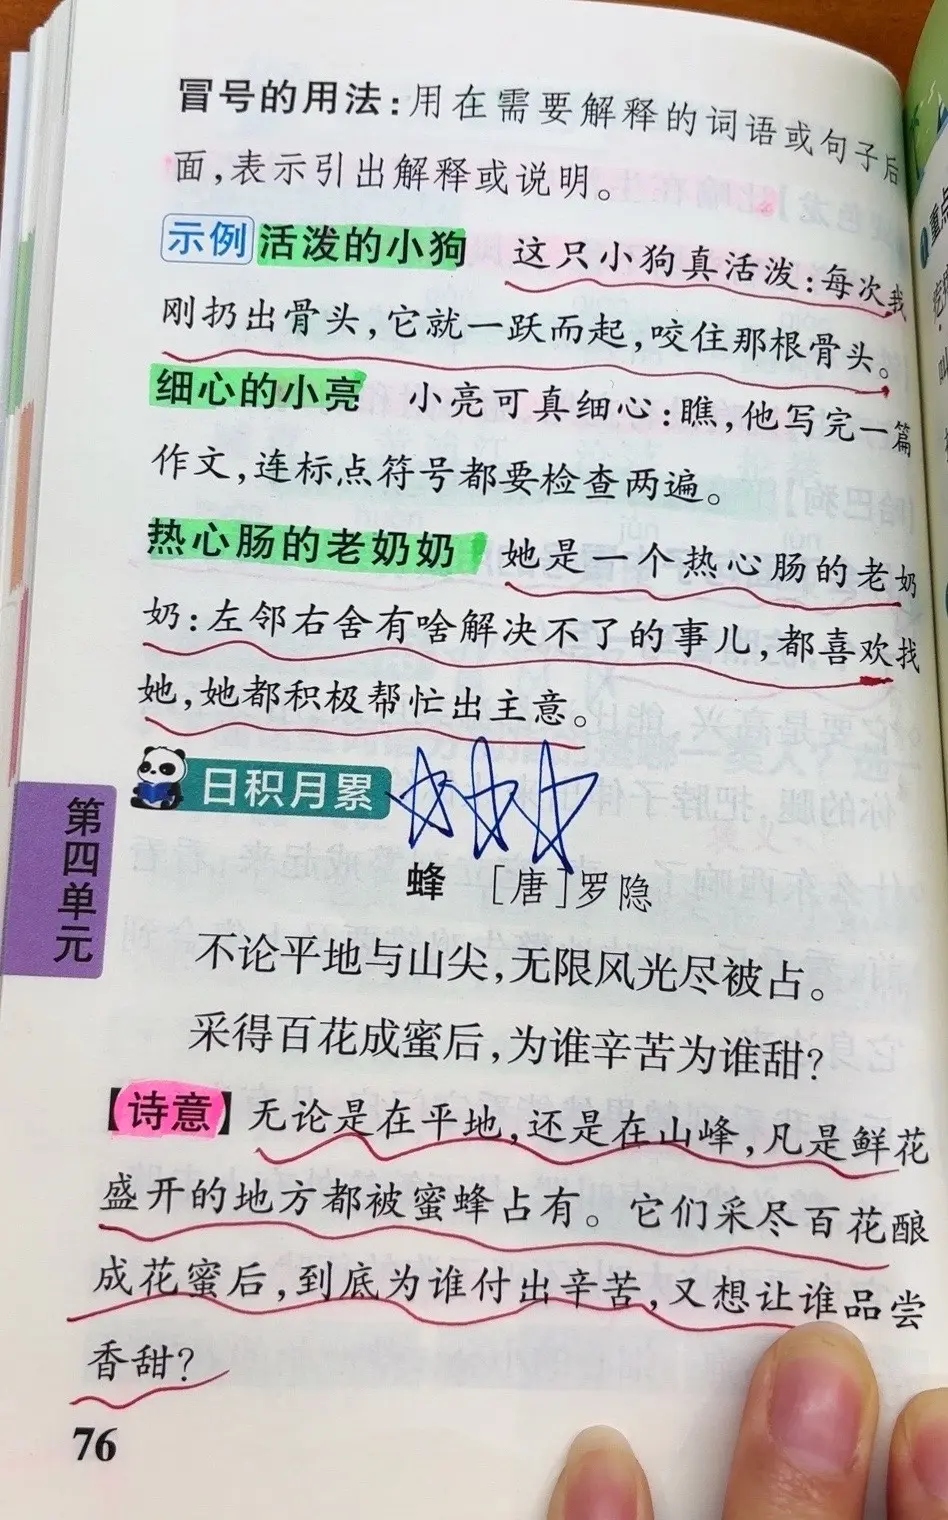 冒号的用法：用在需要解释的词语或句子后
面，表示引出解释或说明。
示例 活泼的小狗 这只小狗真活泼：每次我
刚扔出骨头，它就一跃而起，咬住那根骨头。
细心的小亮 小亮可真细心：瞧，他写完一篇
作文，连标点符号都要检查两遍。
热心肠的老奶奶 她是一个热心肠的老奶
奶：左邻右舍有啥解决不了的事儿，都喜欢找
她，她都积极帮忙出主意。
日积月累
蜂 [唐]罗隐
不论平地与山尖，无限风光尽被占。
采得百花成蜜后，为谁辛苦为谁甜？
【诗意】无论是在平地，还是在山峰，凡是鲜花
盛开的地方都被蜜蜂占有。它们采尽百花酿
成花蜜后，到底为谁付出辛苦，又想让谁品尝
香甜？
第四单元
76
重点